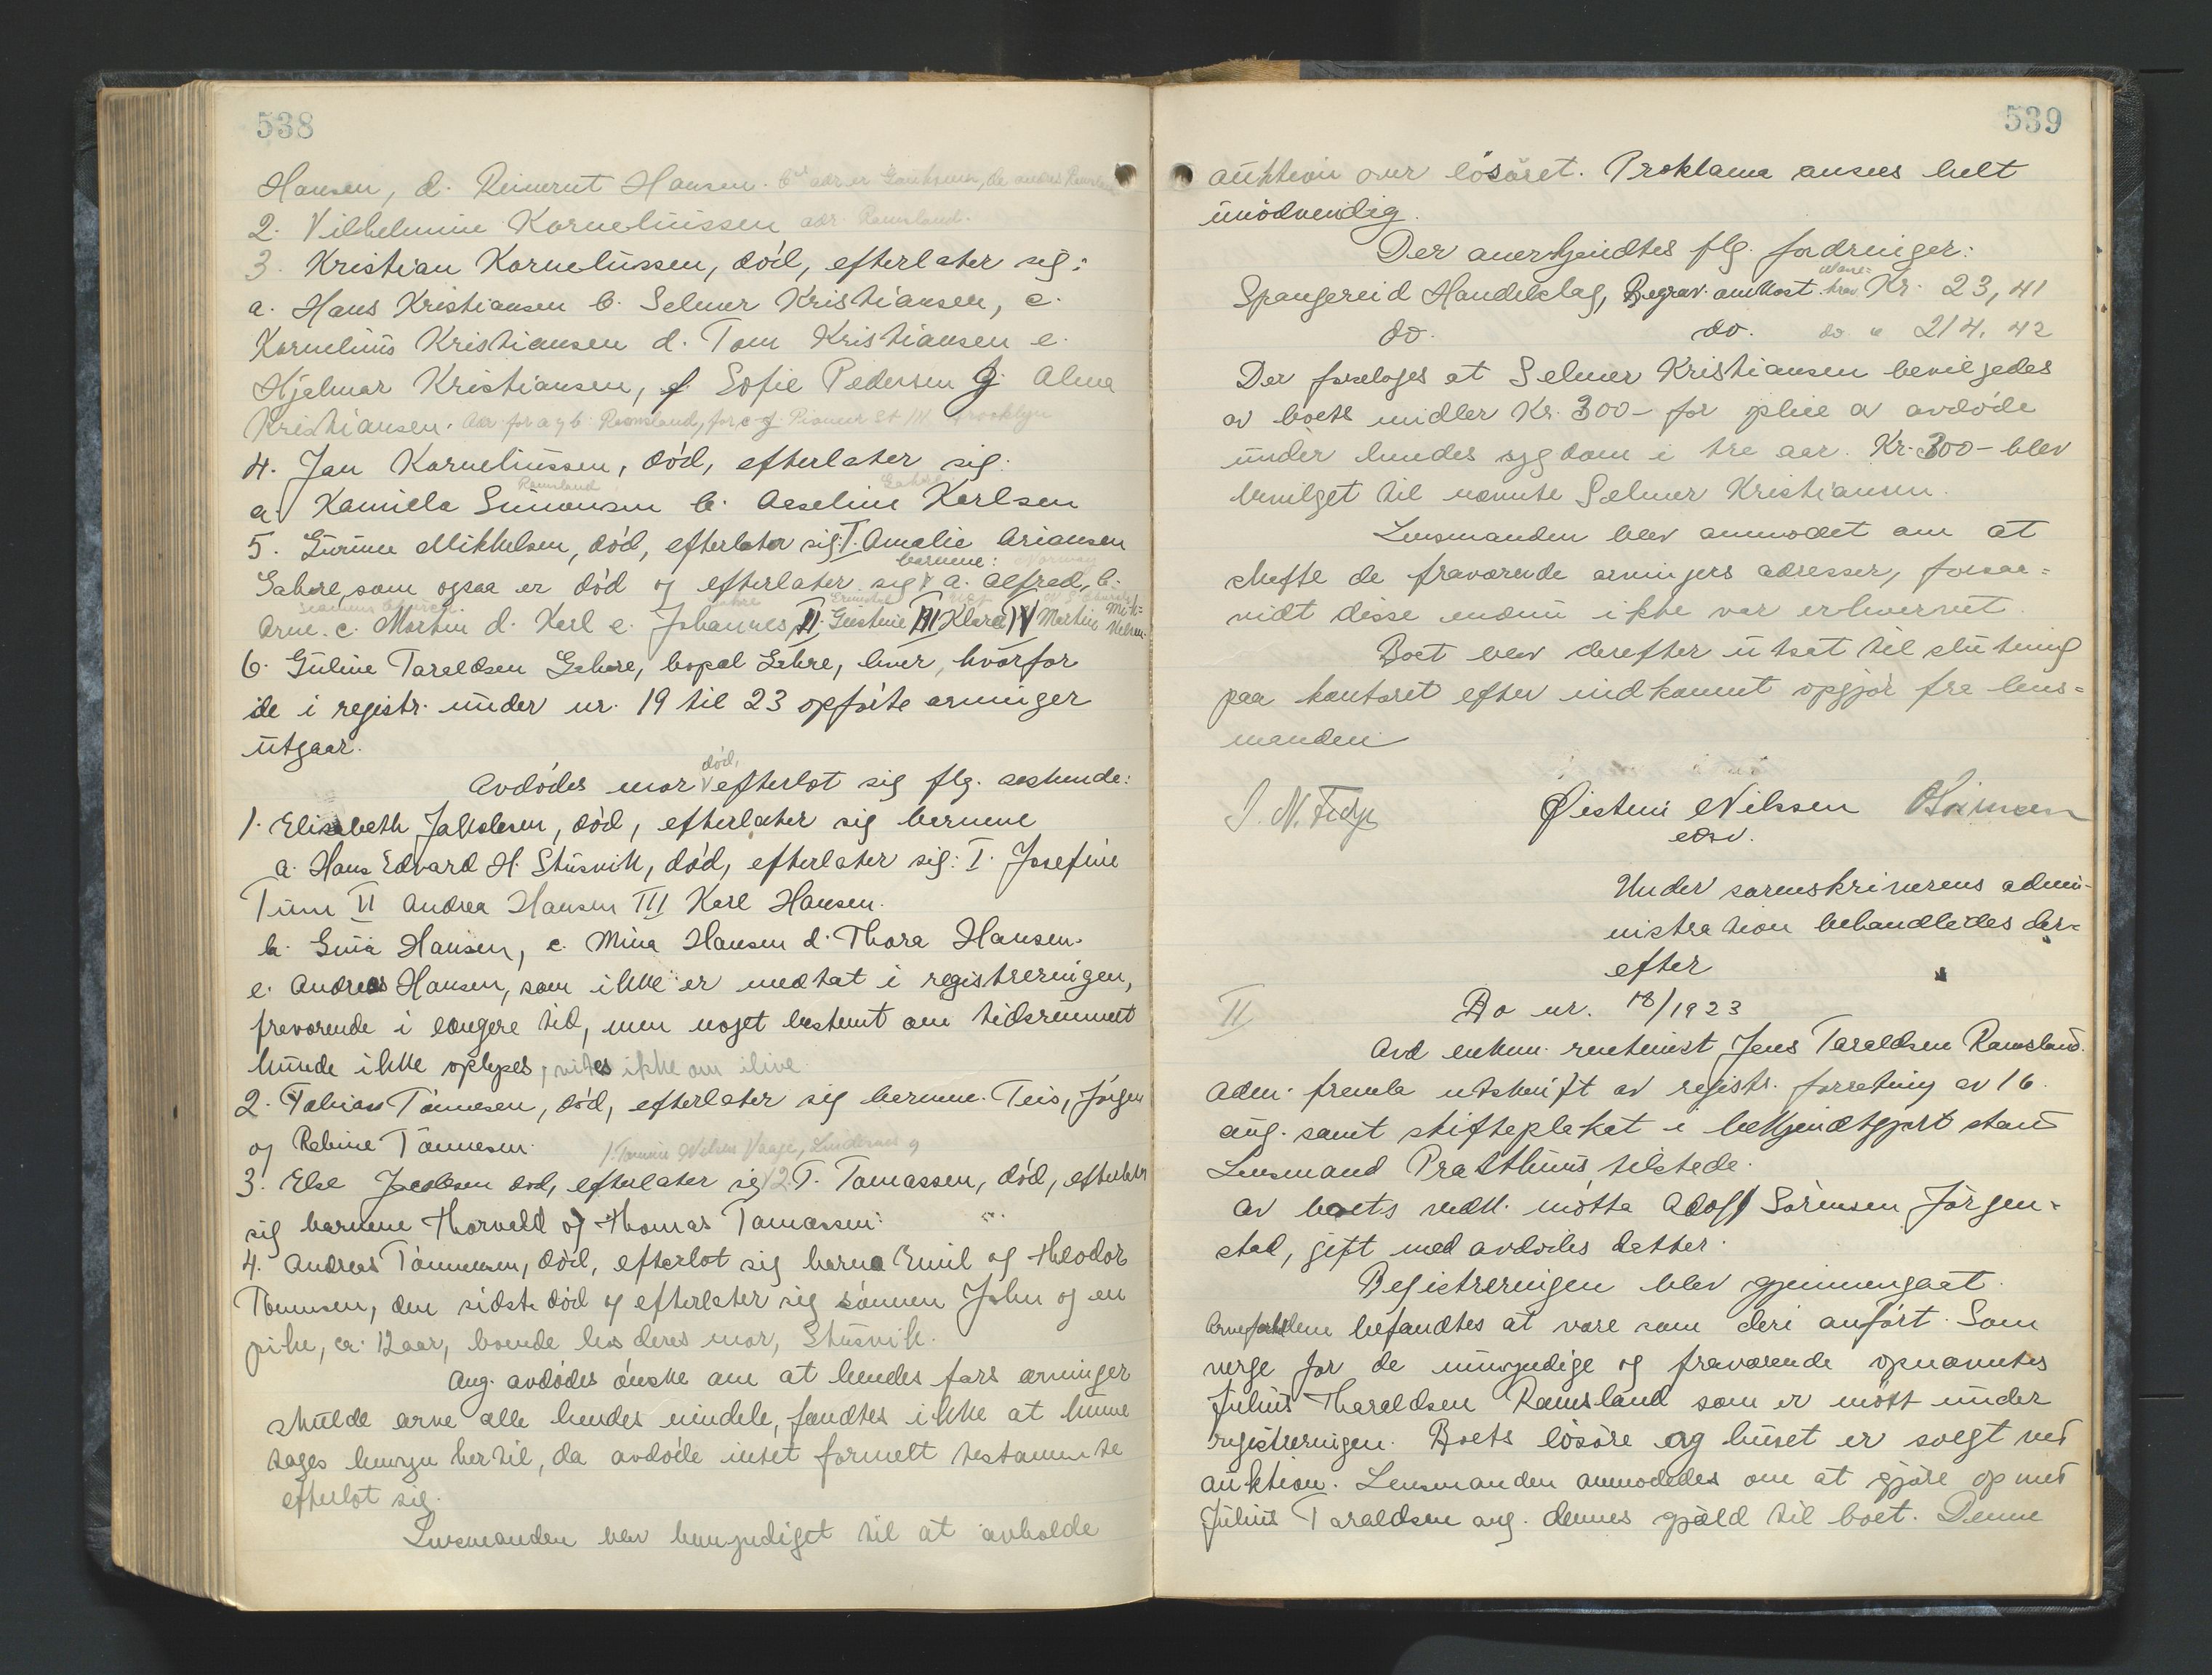 538
Hansen, d. Reinert Hansen. adr. er de andre
2. Vilhelmine Korneliussen adr. Ramsland.
3. Kristian Korneliussen, död, efterlater sig:
a. Hans Kristiansen b. Selmer Kristiansen, c.
Kornelius Kristiansen d. Tom Kristiansen e.
Hjalmar Kristiansen, f Sofie Pedersen g. Alma
Kristiansen. Adr. for a og b. Ramsland, for c-g Pioneer St Brooklyn
4. Jan Korneliussen, död, efterlater sig:
Ramsland
a. Kamilla Simonsen b. Aseline Karlsen
5. Gurine Mikkelsen, död, efterlater sig: I. Amalie Ariansen
barnene: Norman
Gahre, som ogsaa er död og efterlater sig a. Alfred, b.
Arne. c. Martin d. Karl e. Johannes II. Gustine III Klara IV Martin Mik-
kelsen.
6. Guline Taraldsen Gahre, bopæl Gahre, lever, hvorfor
de i registr. under nr. 19 til 23 opförte arvinger
utgaar.
död,
Avdödes mor efterlot sig flg. söskende:
1. Elisabeth Jakobsen, död, efterlater sig barnene
a. Hans Edvard H. Stusvik, död, efterlater sig: I. Josefine
II Andrea Hansen III Karl Hansen.
b. Gina Hansen, c. Mina Hansen d. Thora Hansen.
e. Andreas Hansen, som ikke er medtat i registreringen,
fraværende i længere tid, men noget bestemt om tidsrummet
kunde ikke oplyses, vites ikke om ilive
2. Tobias Tönnesen, död, efterlater sig barnene. Teis, Jörgen
og Rabine Tönnesen.
1. Nilsen Vaage, Lindesnes og
3. Else Jacobsen död, efterlater sig 2. T. Tomassen, död, efterlater
sig barnene Thorvald og Thomas Tomassen.
4. Andreas Tönnesen, död, efterlot sig barna Emil og Theodor
Tönnesen, den sidste död og efterlater sig sönnen John og en
pike, ca. 12 aar, boende hos deres mor, Stusvik.
Ang. avdödes önske om at hendes fars arvinger
skulde arve alle hendes eiendele, fandtes ikke at kunne
tages hensyn hertil, da avdöde intet formelt testamente
efterlot sig.
Lensmanden blev bemyndiget til at avholde
539
auktion over lösöret. Proklama ansees helt
unödvendig.
Der anerkjendtes flg. fordringer:
Spangereid Handelslag, Begrav. omkost. krav Kr. 23,41
do. do. do " 214,42
Der foreloges at Selmer Kristiansen bevilgedes
av boets midler Kr. 300- for pleie av avdöde
under hendes sygdom i tre aar. Kr. 300- blev
bevilget til nævnte Selmer Kristiansen.
Lensmanden blev anmodet om at
skaffe de fraværende arvingers adresser, forsaa-
vidt disse endnu ikke var erhvervet.
Boet blev derefter utsat til slutning
paa kontoret efter indkommet opgjör fra lens-
manden
Øistein Nilssen
edsv.
Under sorenskriverens admi-
nistration behandledes der-
efter
II
Bo nr. 18/1923
Avd enkem. rentenist Jens Taraldsen Ramsland.
Adm. fremla utskrift av registr. forretning av 16.
aug. samt skifteplakat i bekjendtgjort stand
Lensmand Præsthus tilstede.
Av boets vedk. mötte Adolf Sörensen Jörgen-
stad, gift med avdödes datter.
Registreringen blev gjennemgaat.
Arveforholdene befandtes at være som deri anfört. Som
verge for de umyndige og fraværende opnævntes
Julius Tharaldsen Ramsland som er mött under
registreringen. Boets lösöre og huset er solgt ved
auktion. Lensmanden anmodedes om at gjöre op med
Julius Taraldsen ang. dennes gjæld til boet. Denne